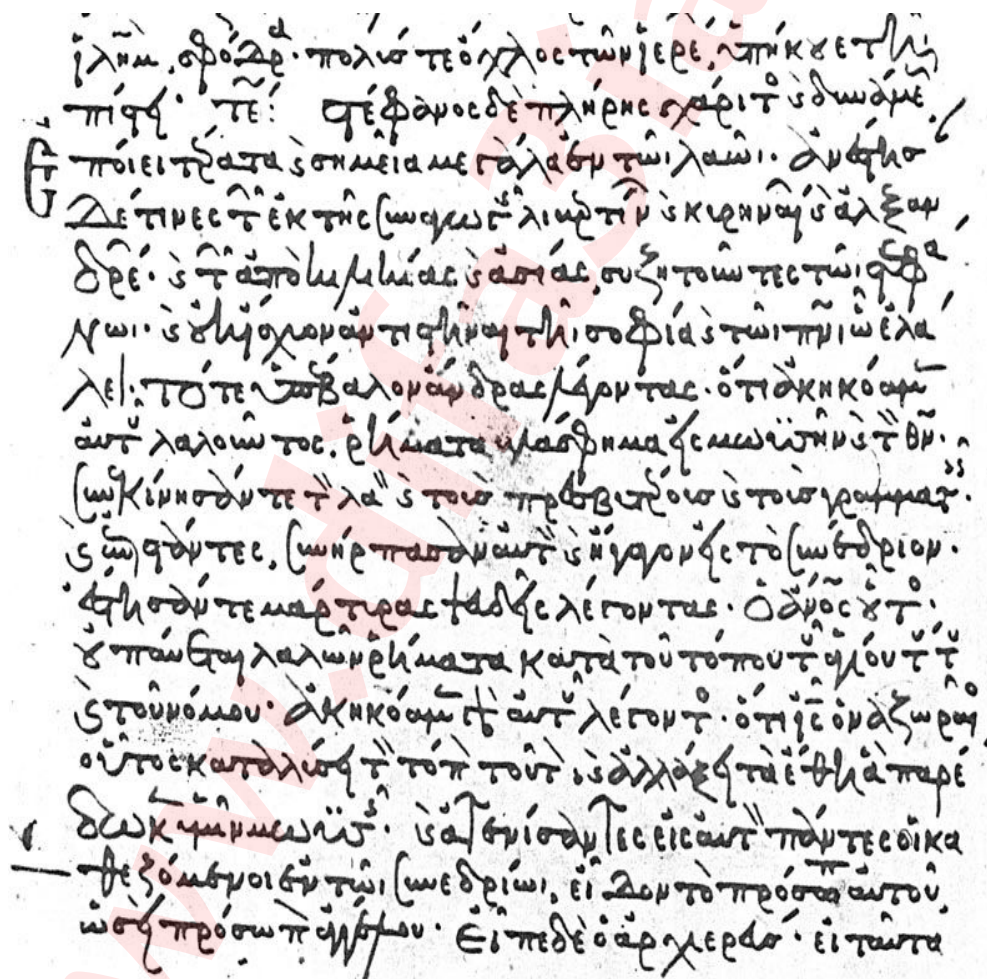 ἱλημ, σφόδρ· πολύς τε ὄχλος τῶν ἱερέ, ὑπήκουε τῆι
πίστει· τε: στέφανος δὲ πλήρης χάριτο ς δυνάμε
ἐποίει τέρατα ς σημεῖα μεγάλα ἐν τῶι λαῶι· ἀνέστησ
δέ τινες τ ἐκ τῆς συναγωγ λιβερτίν ς κιρηναί ς ἀλεξαν
δρέ· ς τ ἀπὸ κιλικίας ς ἀσίας, συζητοῦντες τῶι στεφά
νωι· ς οὐκ ἴσχυον ἀντιστῆναι τῆι σοφία ς τῶι πνι ὧ ἐλά
λει· τότε ὑπέβαλον ἄνδρας λέγοντας· ὅτι ἀκηκόαμεν
αὐτ λαλοῦντος, ῥήματα βλάσφημα εἰς μωϋσῆν ς τ θν·
συνκίνησάν τε τ λα ς τοὺς πρεσβυτέρους ς τοὺς γραμματ·
ς ἐπιστάντες, συνήρπασαν αὐτ ς ἤγαγον εἰς τὸ συνέδριον·
ἔστησάν τε μάρτιρας ψευδεῖς λέγοντας· ὁ ἄνος οὗτο·
οὐ παύεται λαλῶν ῥήματα κατὰ τοῦ τόπου τοῦ ἁγίου τού τ
ς τοῦ νόμου· ἀκηκόαμεν γὰρ αὐτ λέγοντο· ὅτι ις ὁ ναζωραῖο
οὗτος καταλύσει τ τόπ τοῦτ, ς ἀλλάξει τὰ ἔθη ἃ παρέ
δωκεν ἡμῖν μωϋσ· ς ἀτενίσαντες εἰς αὐτ πάντες οἱ κα
θεζόμενοι ἐν τῶι συνεδρίωι, εἶδον τὸ πρόσωπ αὐτοῦ
ὡσεὶ πρόσωπ ἀγγέλου· Εἶπε δὲ ὁ ἀρχιερεύσ· εἰ ταῦτα